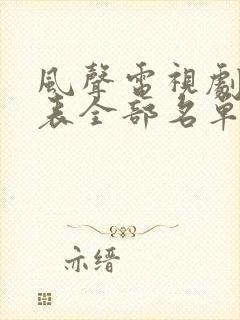 風聲電視劇
表全部名單
亦缙